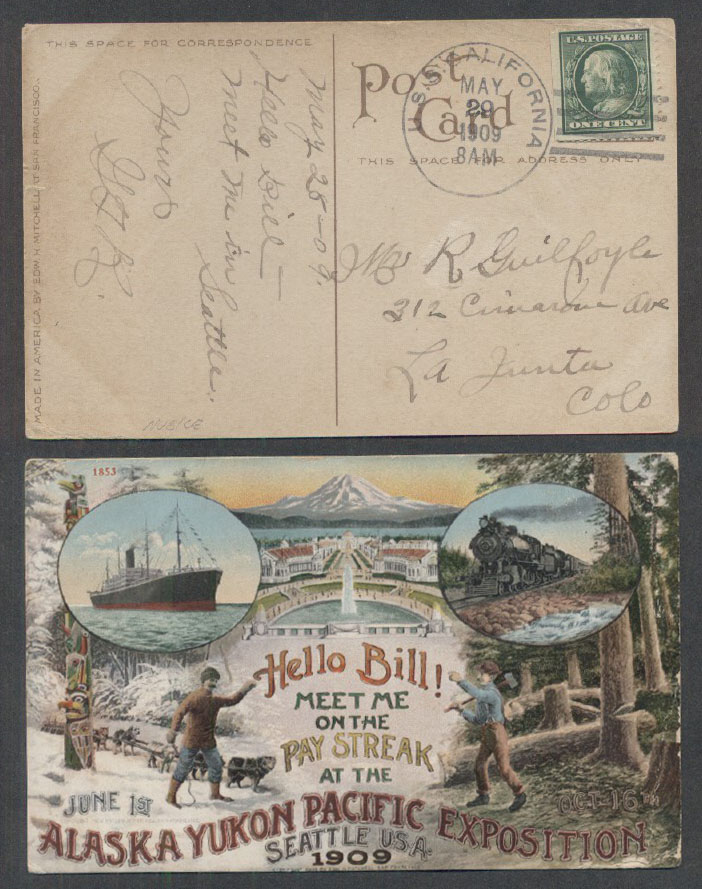 THIS SPACE FOR CORRESPONDENCE
Post
Card
THIS SPACE FOR ADDRESS ONLY
MADE IN AMERICA BY EDW. H. MITCHELL AT SAN FRANCISCO.
U.S.S. CALIFORNIA
MAY
29
1909
8AM
U.S. POSTAGE
ONE CENT
May 25-09.
Hello Bill—
Meet me in
Seattle.
Yours
R Guilfoyle
312 Cimarone Ave
La Junta
Colo
1853
Hello Bill!
MEET ME
ON THE
PAY STREAK
AT THE
JUNE 1ST
OCT-16TH
ALASKA YUKON PACIFIC EXPOSITION
SEATTLE U.S.A.
1909